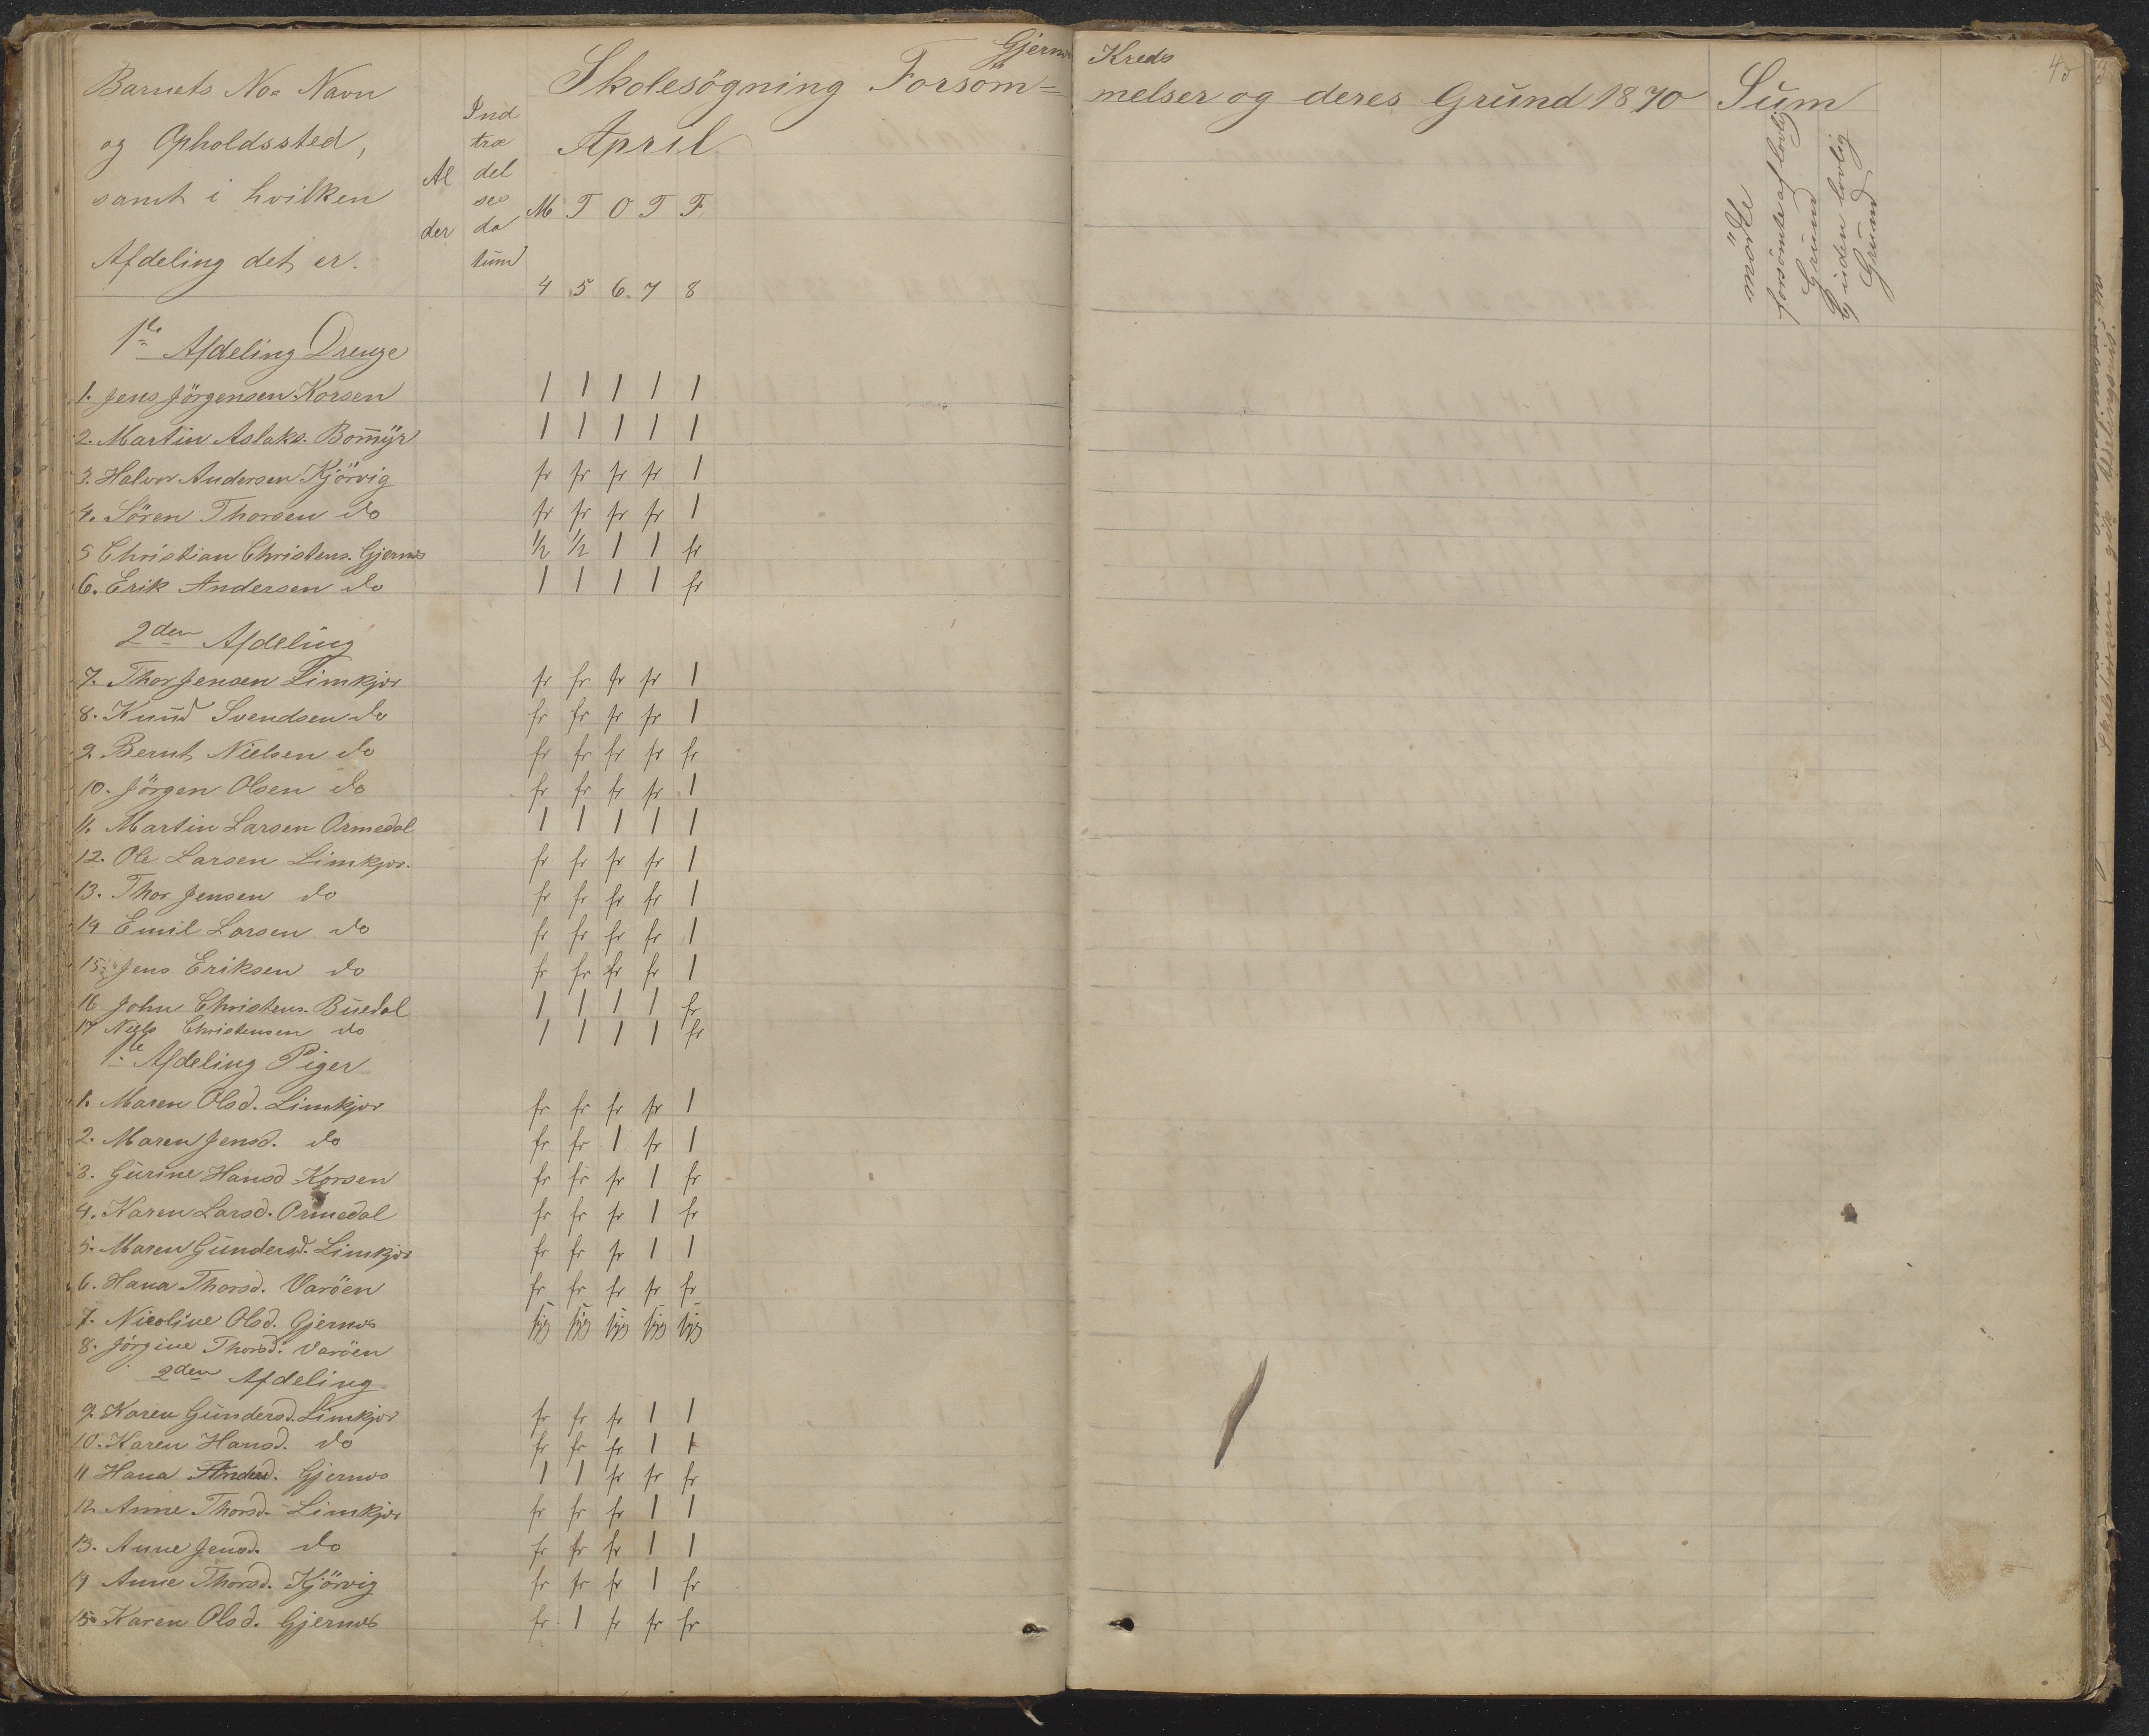 Gjernes Kreds
Barnets No= Navn
og Opholdssted,
samt i hvilken
Afdeling det er.
Al
der
Ind
træ
del
ses
da
tum
Skolesögning Forsöm=
melser og deres Grund 1870 Sum
45
April
M T O T F
4 5 6. 7 8
mödte
forsömte af lovlig
Grund
uden lovlig
Grund
1te Afdeling Drenge
1. Jens Jörgensen Korsen 1 1 1 1 1
2. Martin Aslaks. Bommyr 1 1 1 1 1
3. Halvor Andersen Kjörvig fr fr fr fr 1
4. Sören Thorsen do fr fr fr fr 1
5 Christian Christens. Gjernes 1/2 1/2 1 1 fr
6. Erik Andersen do 1 1 1 1 fr
2den Afdeling
7. Thor Jensen Limkjær fr fr fr fr 1
8. Knud Svendsen do fr fr fr fr 1
9. Bernt Nielsen do fr fr fr fr fr
10. Jörgen Olsen do fr fr fr fr 1
11. Martin Larsen Ormedal 1 1 1 1 1
12. Ole Larsen Limkjær. fr fr fr fr 1
13. Thor Jensen do fr fr fr fr 1
14 Emil Larsen do fr fr fr fr 1
15. Jens Eriksen do fr fr fr fr 1
16 John Christens. Buedal 1 1 1 1 fr
17 Niels Christensen do 1 1 1 1 fr
1te Afdeling Piger
1. Maren Olsd. Limkjær fr fr fr fr 1
2. Maren Jensd. do fr fr 1 fr 1
3. Gurine Hansd Korsen fr fr fr 1 fr
4. Karen Larsd. Ormedal fr fr fr 1 fr
5. Maren Gundersd. Limkjær fr fr fr 1 1
6. Hana Thorsd. Varöen fr fr fr fr fr
7. Nicoline Olsd. Gjernes syg syg syg syg syg
8. Jörgine Thorsd. Varöen
2den Afdeling
9. Karen Gundersd. Limkjær fr fr fr 1 1
10. Karen Hansd. do fr fr fr 1 1
11 Hana Andersd. Gjernes 1 1 fr fr fr
12 Anne Thorsd. Limkjær fr fr fr 1 1
13. Anne Jensd. do fr fr fr 1 1
14 Anne Thorsd. Kjörvig fr fr fr 1 fr
15. Karen Olsd. Gjernes fr. 1 fr fr fr